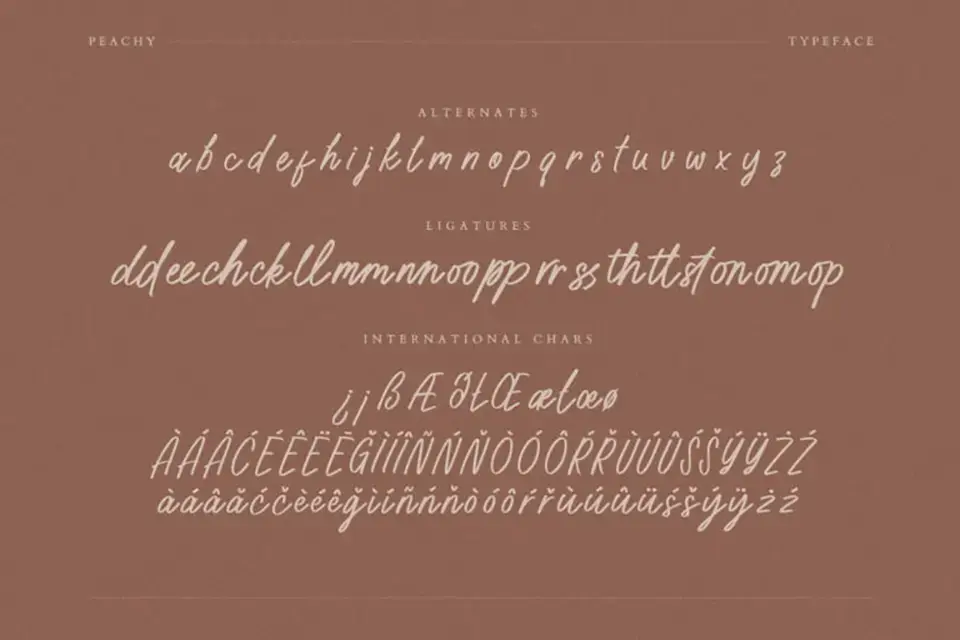 PEACHY TYPEFACE
ALTERNATES
a b c d e f h i j k l m n o p q r s t u v w x y z
LIGATURES
ddeechckllmmnnoopprrssthttstonomop
INTERNATIONAL CHARS
¿¡ßÆØŁŒæłœø
ÀÁÂĆÉÊËĒĞÌÍÏÑŃŇÒÓÔŔŘÙÚÛŚŠÝŸŻŹ
àáâăćčèéêğìíñńňòóôŕřùúûüśšýÿżź